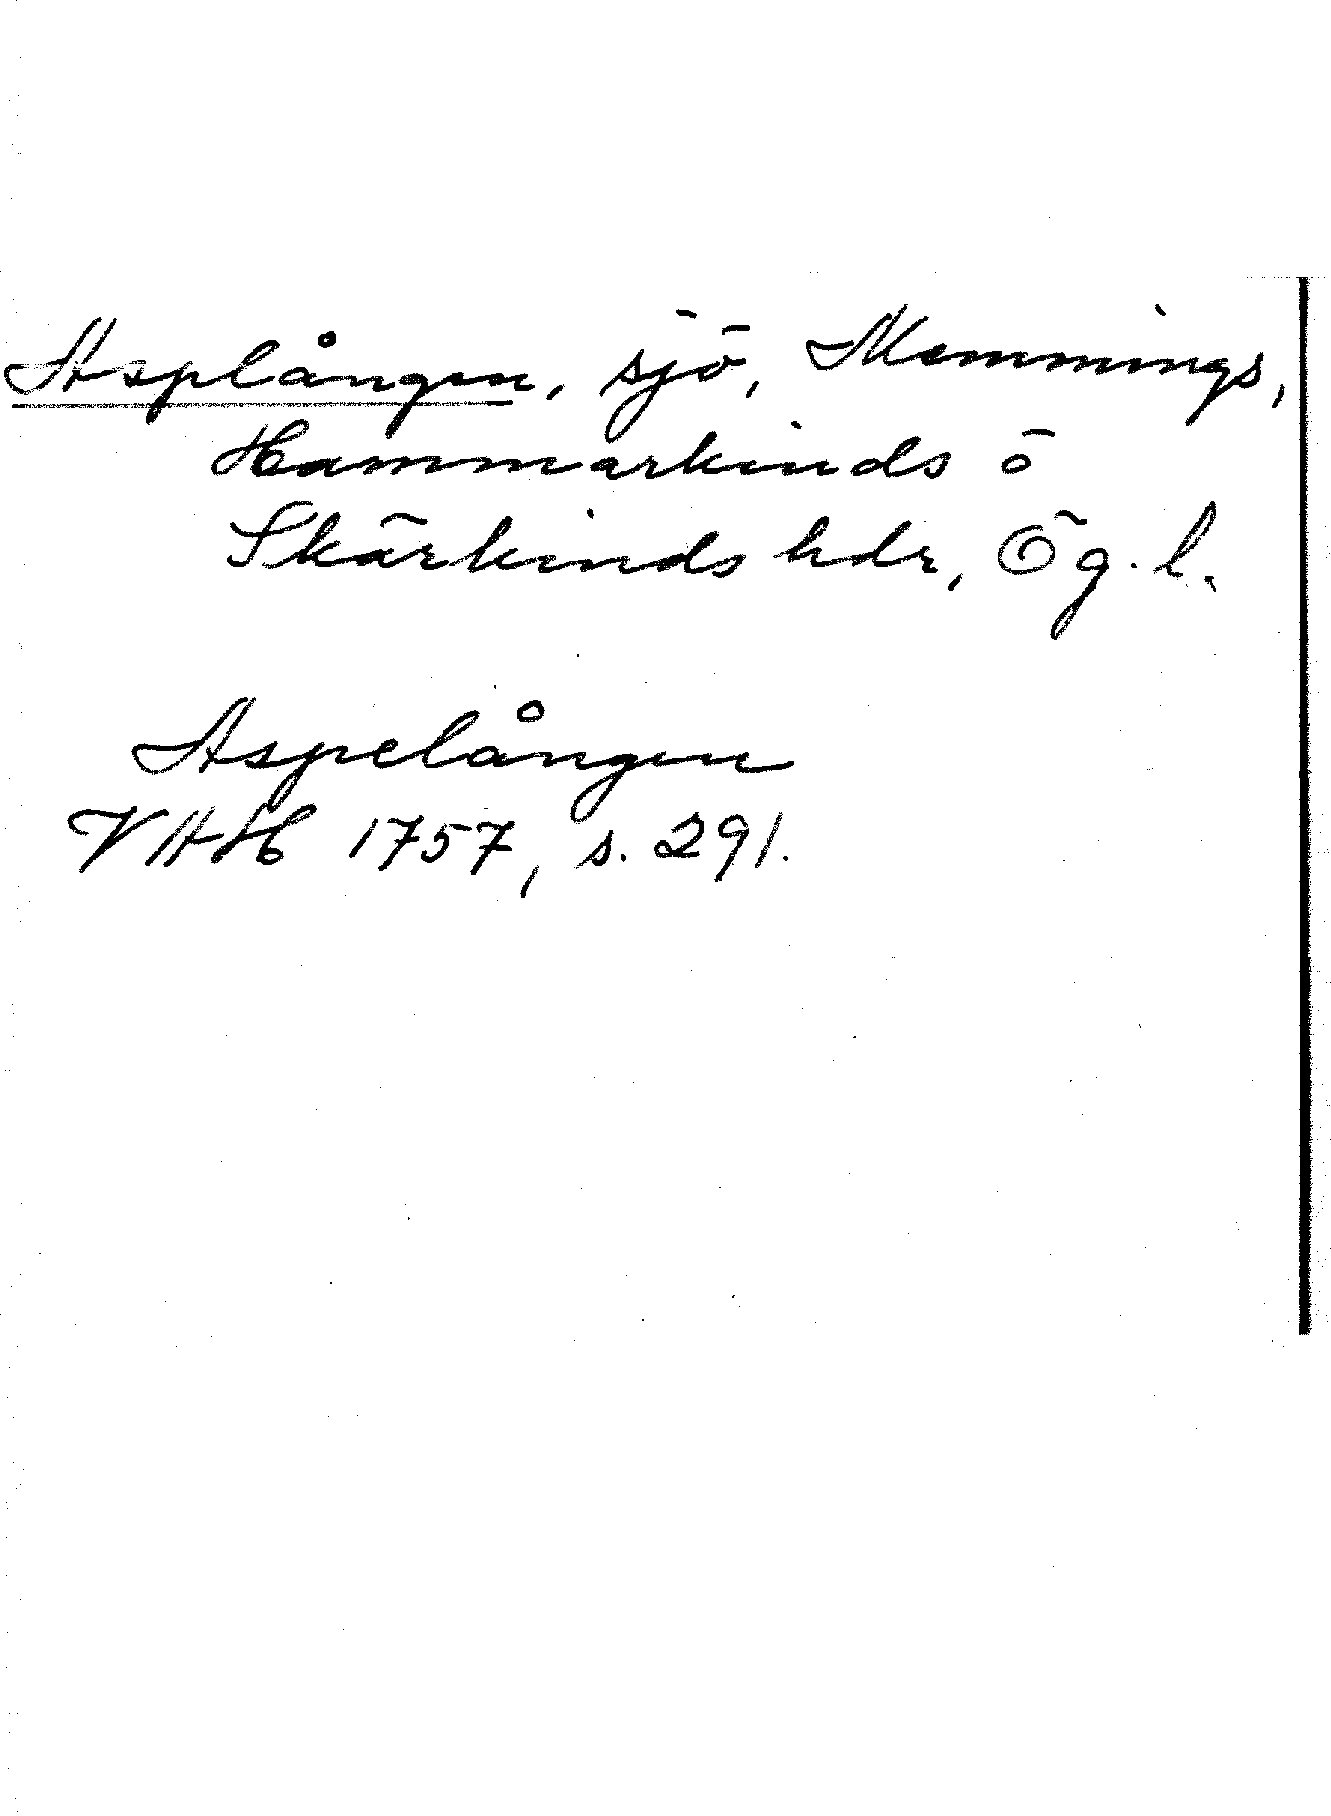 Asplången, sjö, Memmings,
Hammarkinds ö
Skärkinds hdr, Ög. l.
Aspelången
VHAH 1757, s. 291.